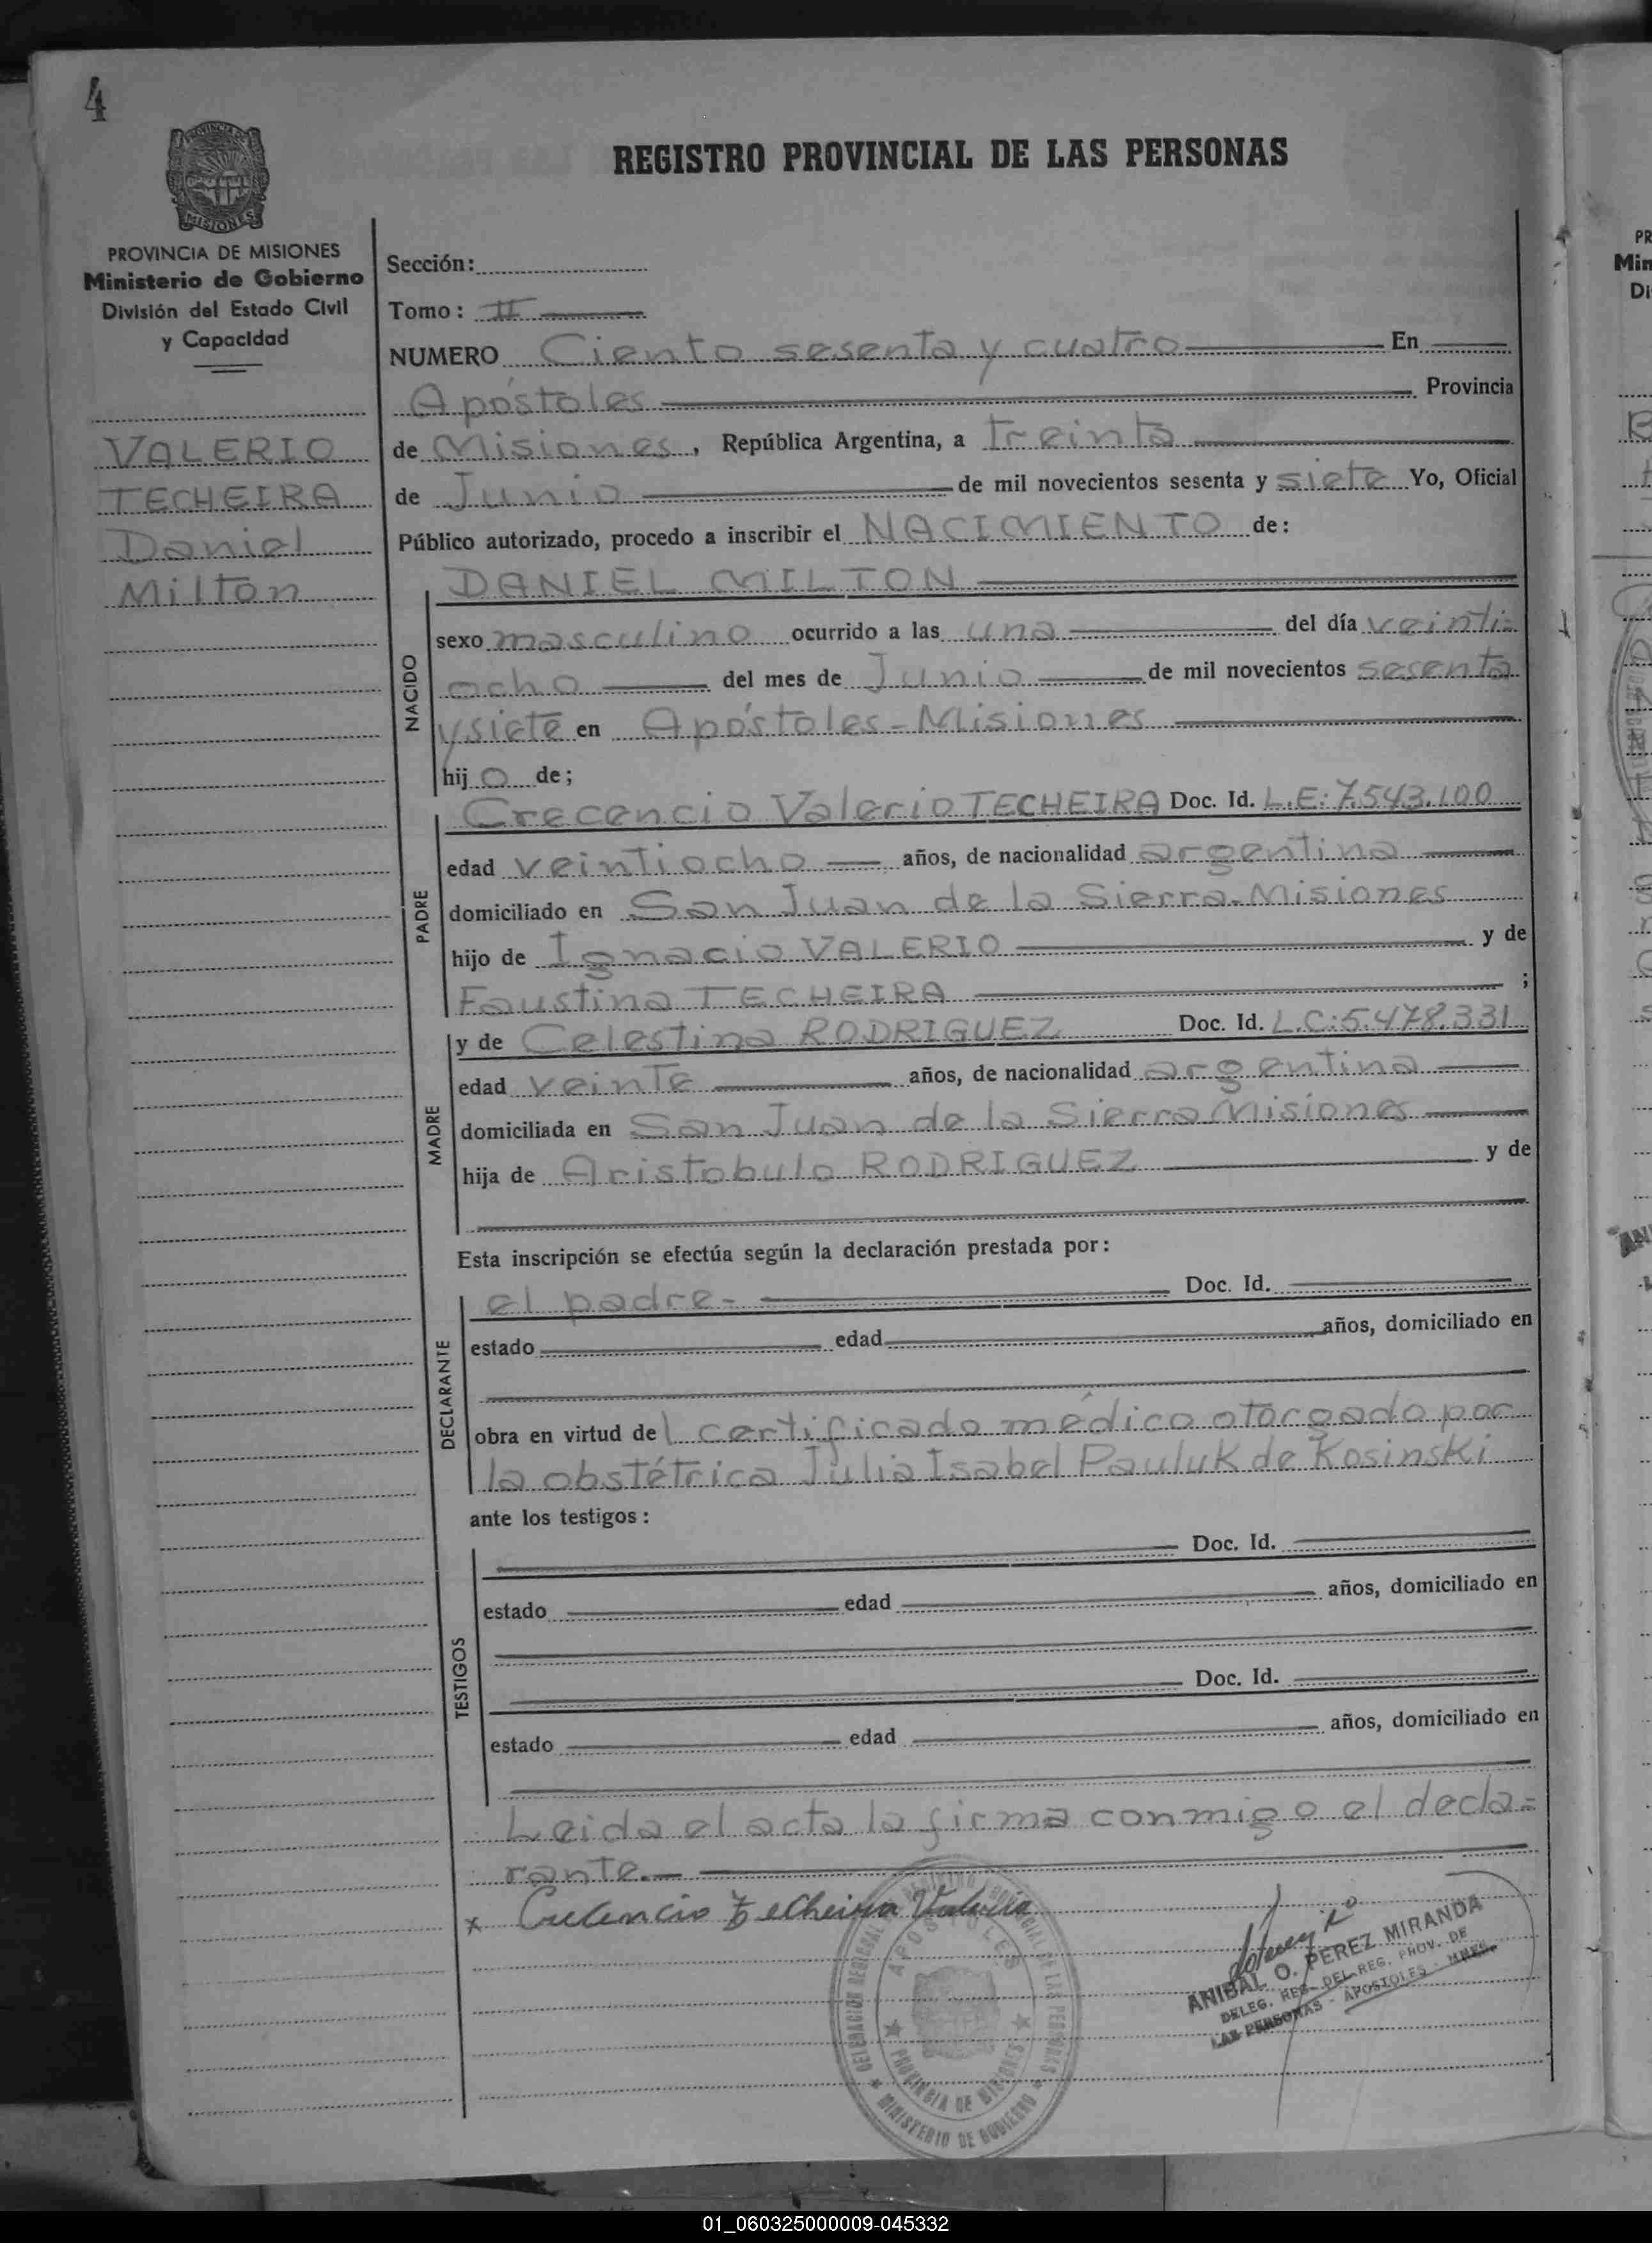 4
PROVINCIA DE
MISIONES
REGISTRO PROVINCIAL DE LAS PERSONAS
PROVINCIA DE MISIONES
Ministerio de Gobierno
División del Estado Civil
y Capacidad
VALERIO
TECHEIRA
Daniel
Milton
Sección:
Tomo: II
NUMERO Ciento sesenta y cuatro En
Apóstoles Provincia
de Misiones, República Argentina, a treinta
de Junio de mil novecientos sesenta y siete Yo, Oficial
Público autorizado, procedo a inscribir el NACIMIENTO de:
NACIDO
DANIEL MILTON
sexo masculino ocurrido a las una del día veinti=
ocho del mes de Junio de mil novecientos sesenta
y siete en Apóstoles-Misiones
hijo de;
PADRE
Crecencio Valerio TECHEIRA Doc. Id. L.E:7.543.100
edad veintiocho años, de nacionalidad argentina
domiciliado en San Juan de la Sierra-Misiones
hijo de Ignacio VALERIO y de
Faustina TECHEIRA ;
MADRE
y de Celestina RODRIGUEZ Doc. Id. L.C:5.478.331
edad veinte años, de nacionalidad argentina
domiciliada en San Juan de la Sierra Misiones
hija de Aristobulo RODRIGUEZ y de
Esta inscripción se efectúa según la declaración prestada por:
DECLARANTE
el padre- Doc. Id.
estado edad años, domiciliado en
obra en virtud del certificado médico otorgado por
la obstétrica Julia Isabel Pauluk de Kosinski
ante los testigos:
TESTIGOS
Doc. Id.
estado edad años, domiciliado en
Doc. Id.
estado edad años, domiciliado en
Leida el acta la firma conmigo el decla=
rante.-
x Crecencio Techeira Valerio
DELEGACION REGIONAL DEL REGISTRO PROVINCIAL DE LAS PERSONAS
APOSTOLES
PROVINCIA DE MISIONES
MINISTERIO DE GOBIERNO
ANIBAL O. PEREZ MIRANDA
DELEG. REG. DEL REG. PROV. DE
LAS PERSONAS - APOSTOLES - MNES.
01_060325000009-045332